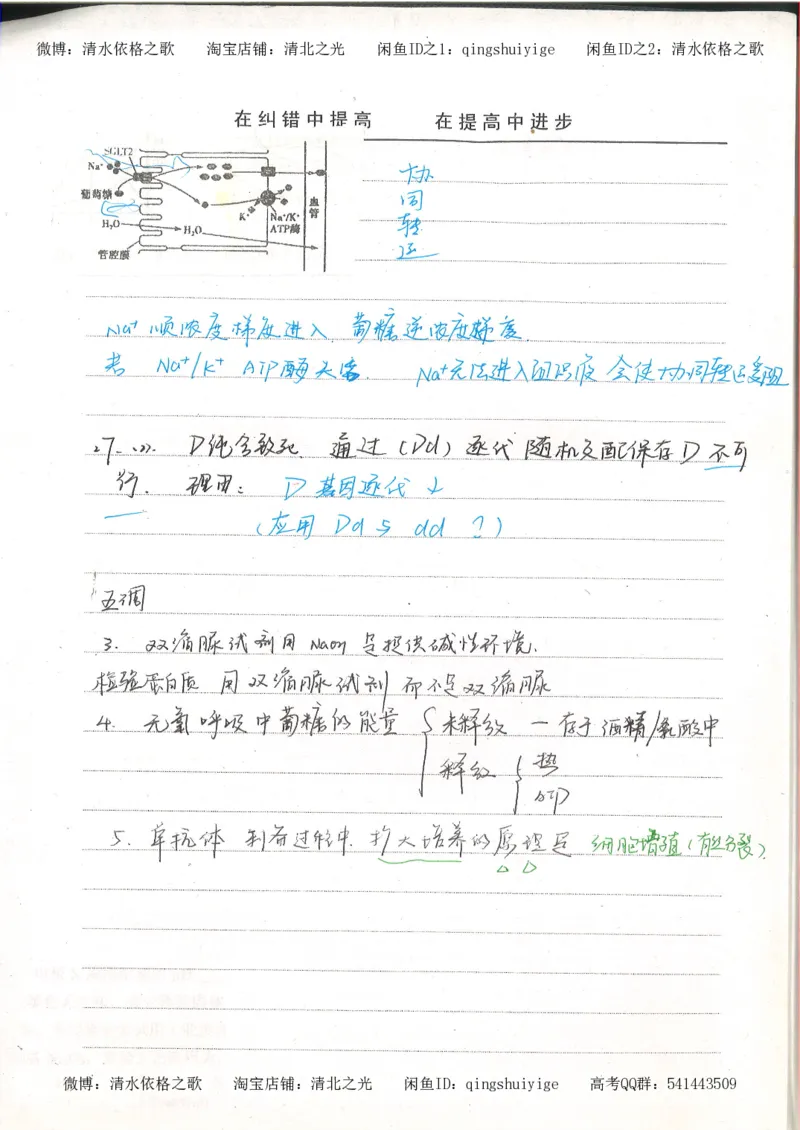 微博：清水依格之歌 淘宝店铺：清北之光 闲鱼ID之1：qingshuiyige 闲鱼ID之2：清水依格之歌
在纠错中提高 在提高中进步
SGLT2
Na⁺
葡萄糖
H₂O
H₂O
K⁺
Na⁺/K⁺
ATP酶
血管
管腔膜
协同转运
Na⁺顺浓度梯度进入，葡糖逆浓度梯度.
若 Na⁺/K⁺ ATP酶失活. Na⁺无法进入组织液 会使协同转运受阻
27. (2). D纯合致死. 通过（Dd）逐代随机交配保存D不可
行. 理由： D基因逐代↓
（应用 Dd 与 dd ？）
五调
3. 双缩脲试剂用 NaOH 是提供碱性环境.
检验蛋白质 用双缩脲试剂 而不是双缩脲
4. 无氧呼吸中葡糖的能量 { 未释放 — 存于酒精/乳酸中
释放 { 热
ATP
5. 单抗体 制备过程中. 扩大培养的原理是 细胞增殖（有丝分裂）.
微博：清水依格之歌 淘宝店铺：清北之光 闲鱼ID：qingshuiyige 高考QQ群：541443509